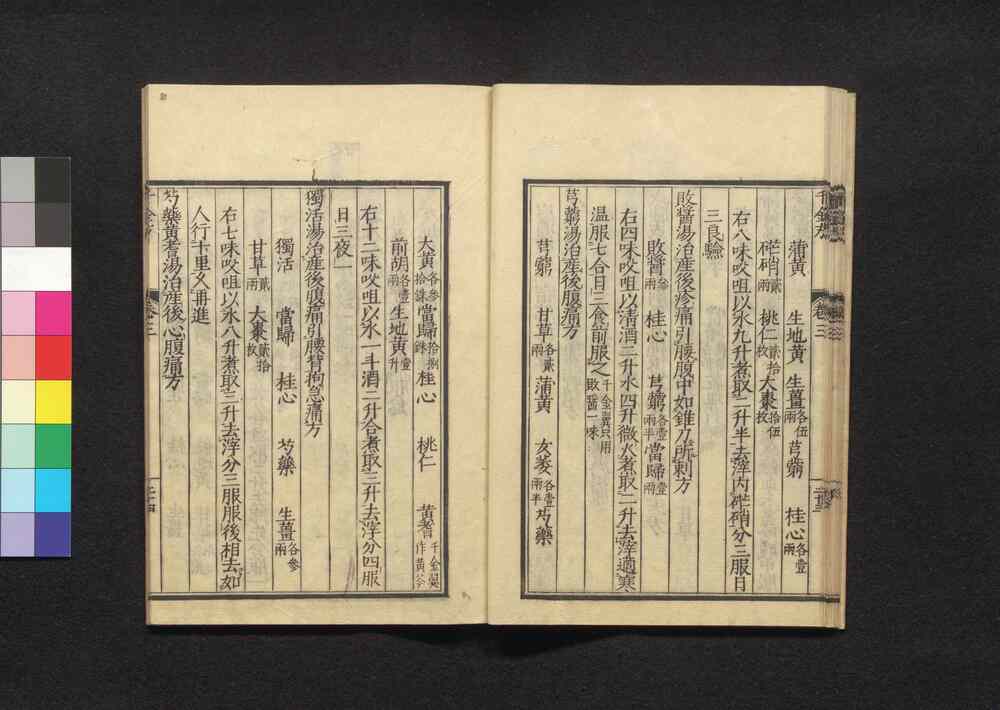 蒲黃 生地黃 生薑各伍兩 芎藭 桂心各壹兩
硭硝貳兩 桃仁貳拾枚 大棗拾伍枚
右八味㕮咀以水九升煮取二升半去滓內硭硝分三服日
三良驗
敗醬湯治產後疹痛引腰腹中如錐刀所刺方
敗醬參兩 桂心 芎藭各壹兩半 當歸壹兩
右四味㕮咀以清酒二升水四升微火煮取二升去滓適寒
溫服七合日三食前服之千金翼只用敗醬一味
芎藭湯治產後腹痛方
芎藭 甘草各貳兩 蒲黃 女萎各壹兩半 芍藥
大黃各參拾銖 當歸拾捌銖 桂心 桃仁 黃耆千金翼作黃芩
前胡各壹兩 生地黃壹升
右十二味㕮咀以水一斗酒二升合煮取三升去滓分四服
日三夜一
獨活湯治產後腹痛引腰背拘急痛方
獨活 當歸 桂心 芍藥 生薑各參兩
甘草貳兩 大棗貳拾枚
右七味㕮咀以水八升煮取三升去滓分三服服後相去如
人行十里久再進
芍藥黃耆湯治產後心腹痛方
卷三